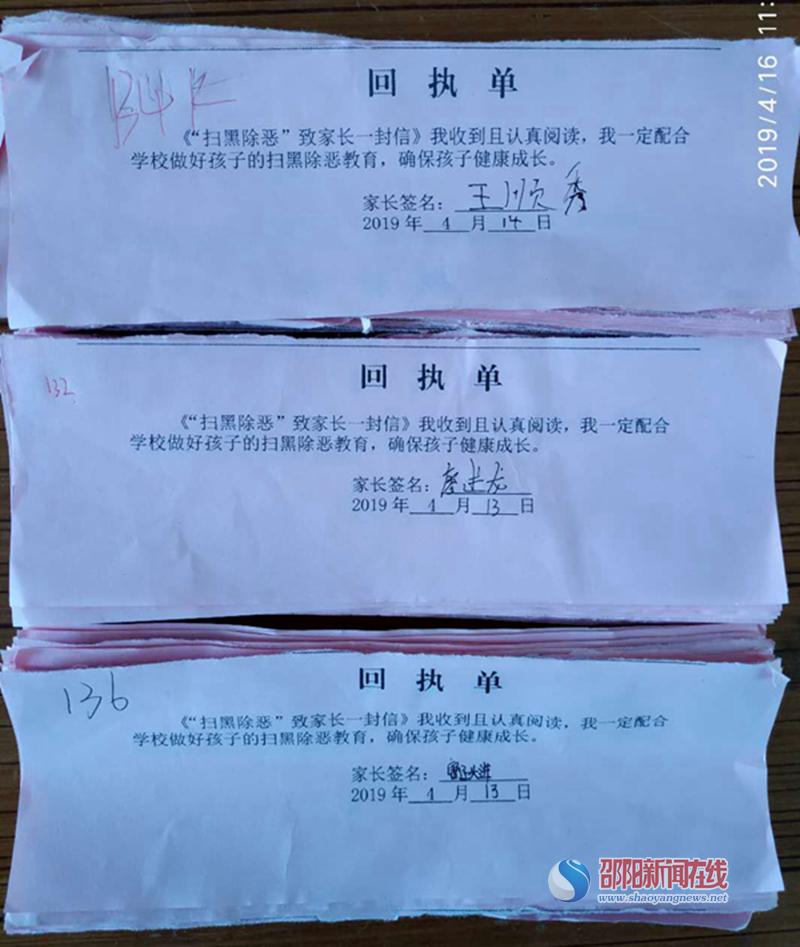 2019/4/16 11:
回执单
《“扫黑除恶”致家长一封信》我收到且认真阅读，我一定配合
学校做好孩子的扫黑除恶教育，确保孩子健康成长。
家长签名：王顺秀
2019年4月14日
132
回执单
《“扫黑除恶”致家长一封信》我收到且认真阅读，我一定配合
学校做好孩子的扫黑除恶教育，确保孩子健康成长。
家长签名：
2019年4月13日
136
回执单
《“扫黑除恶”致家长一封信》我收到且认真阅读，我一定配合
学校做好孩子的扫黑除恶教育，确保孩子健康成长。
家长签名：
2019年4月13日
邵阳新闻在线
www.shaoyangnews.net